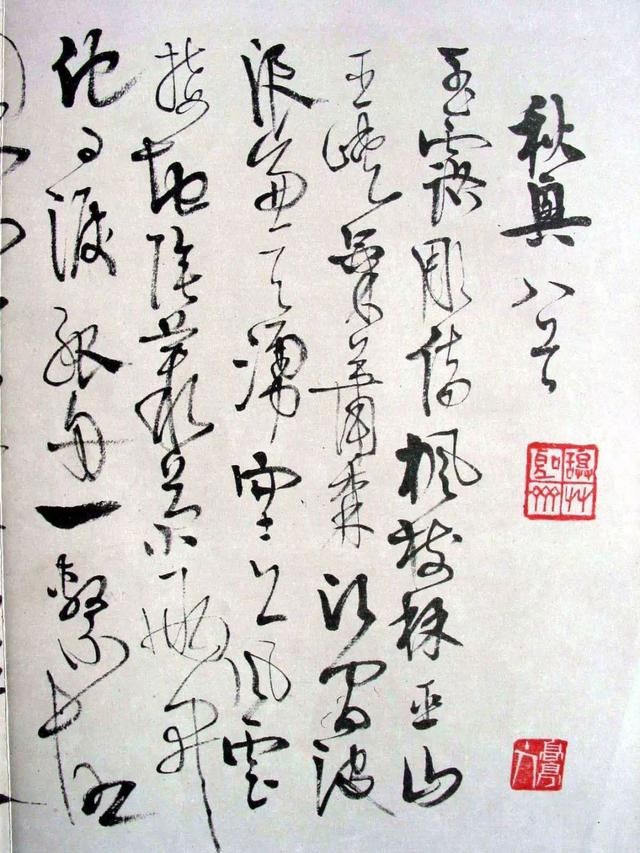 秋興八首
玉露彫傷楓樹林巫山
巫峽氣蕭森江間波
浪兼天湧塞上風雲
接地陰叢菊兩開
他日淚孤舟一繫故園